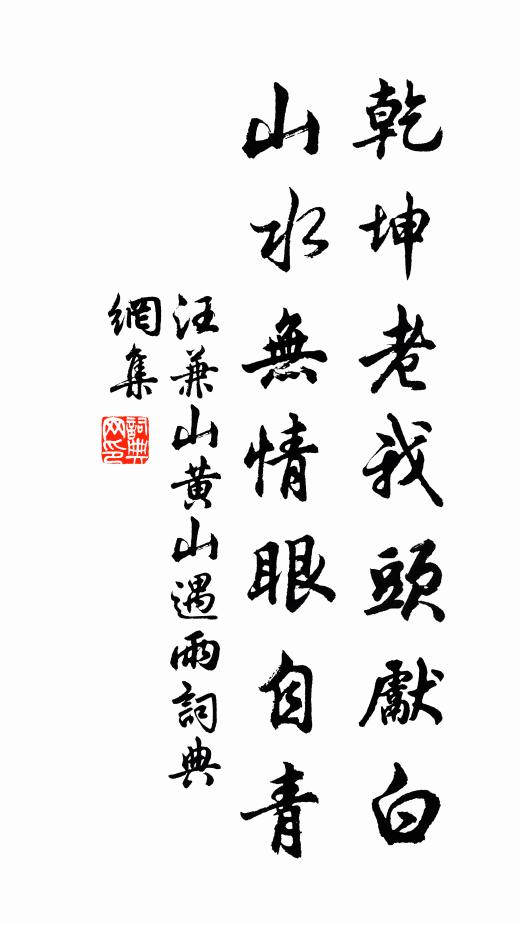 乾坤老我頭獻白
山水無情眼自青
汪兼山黃山遇雨詞典
網集
詞典
網印